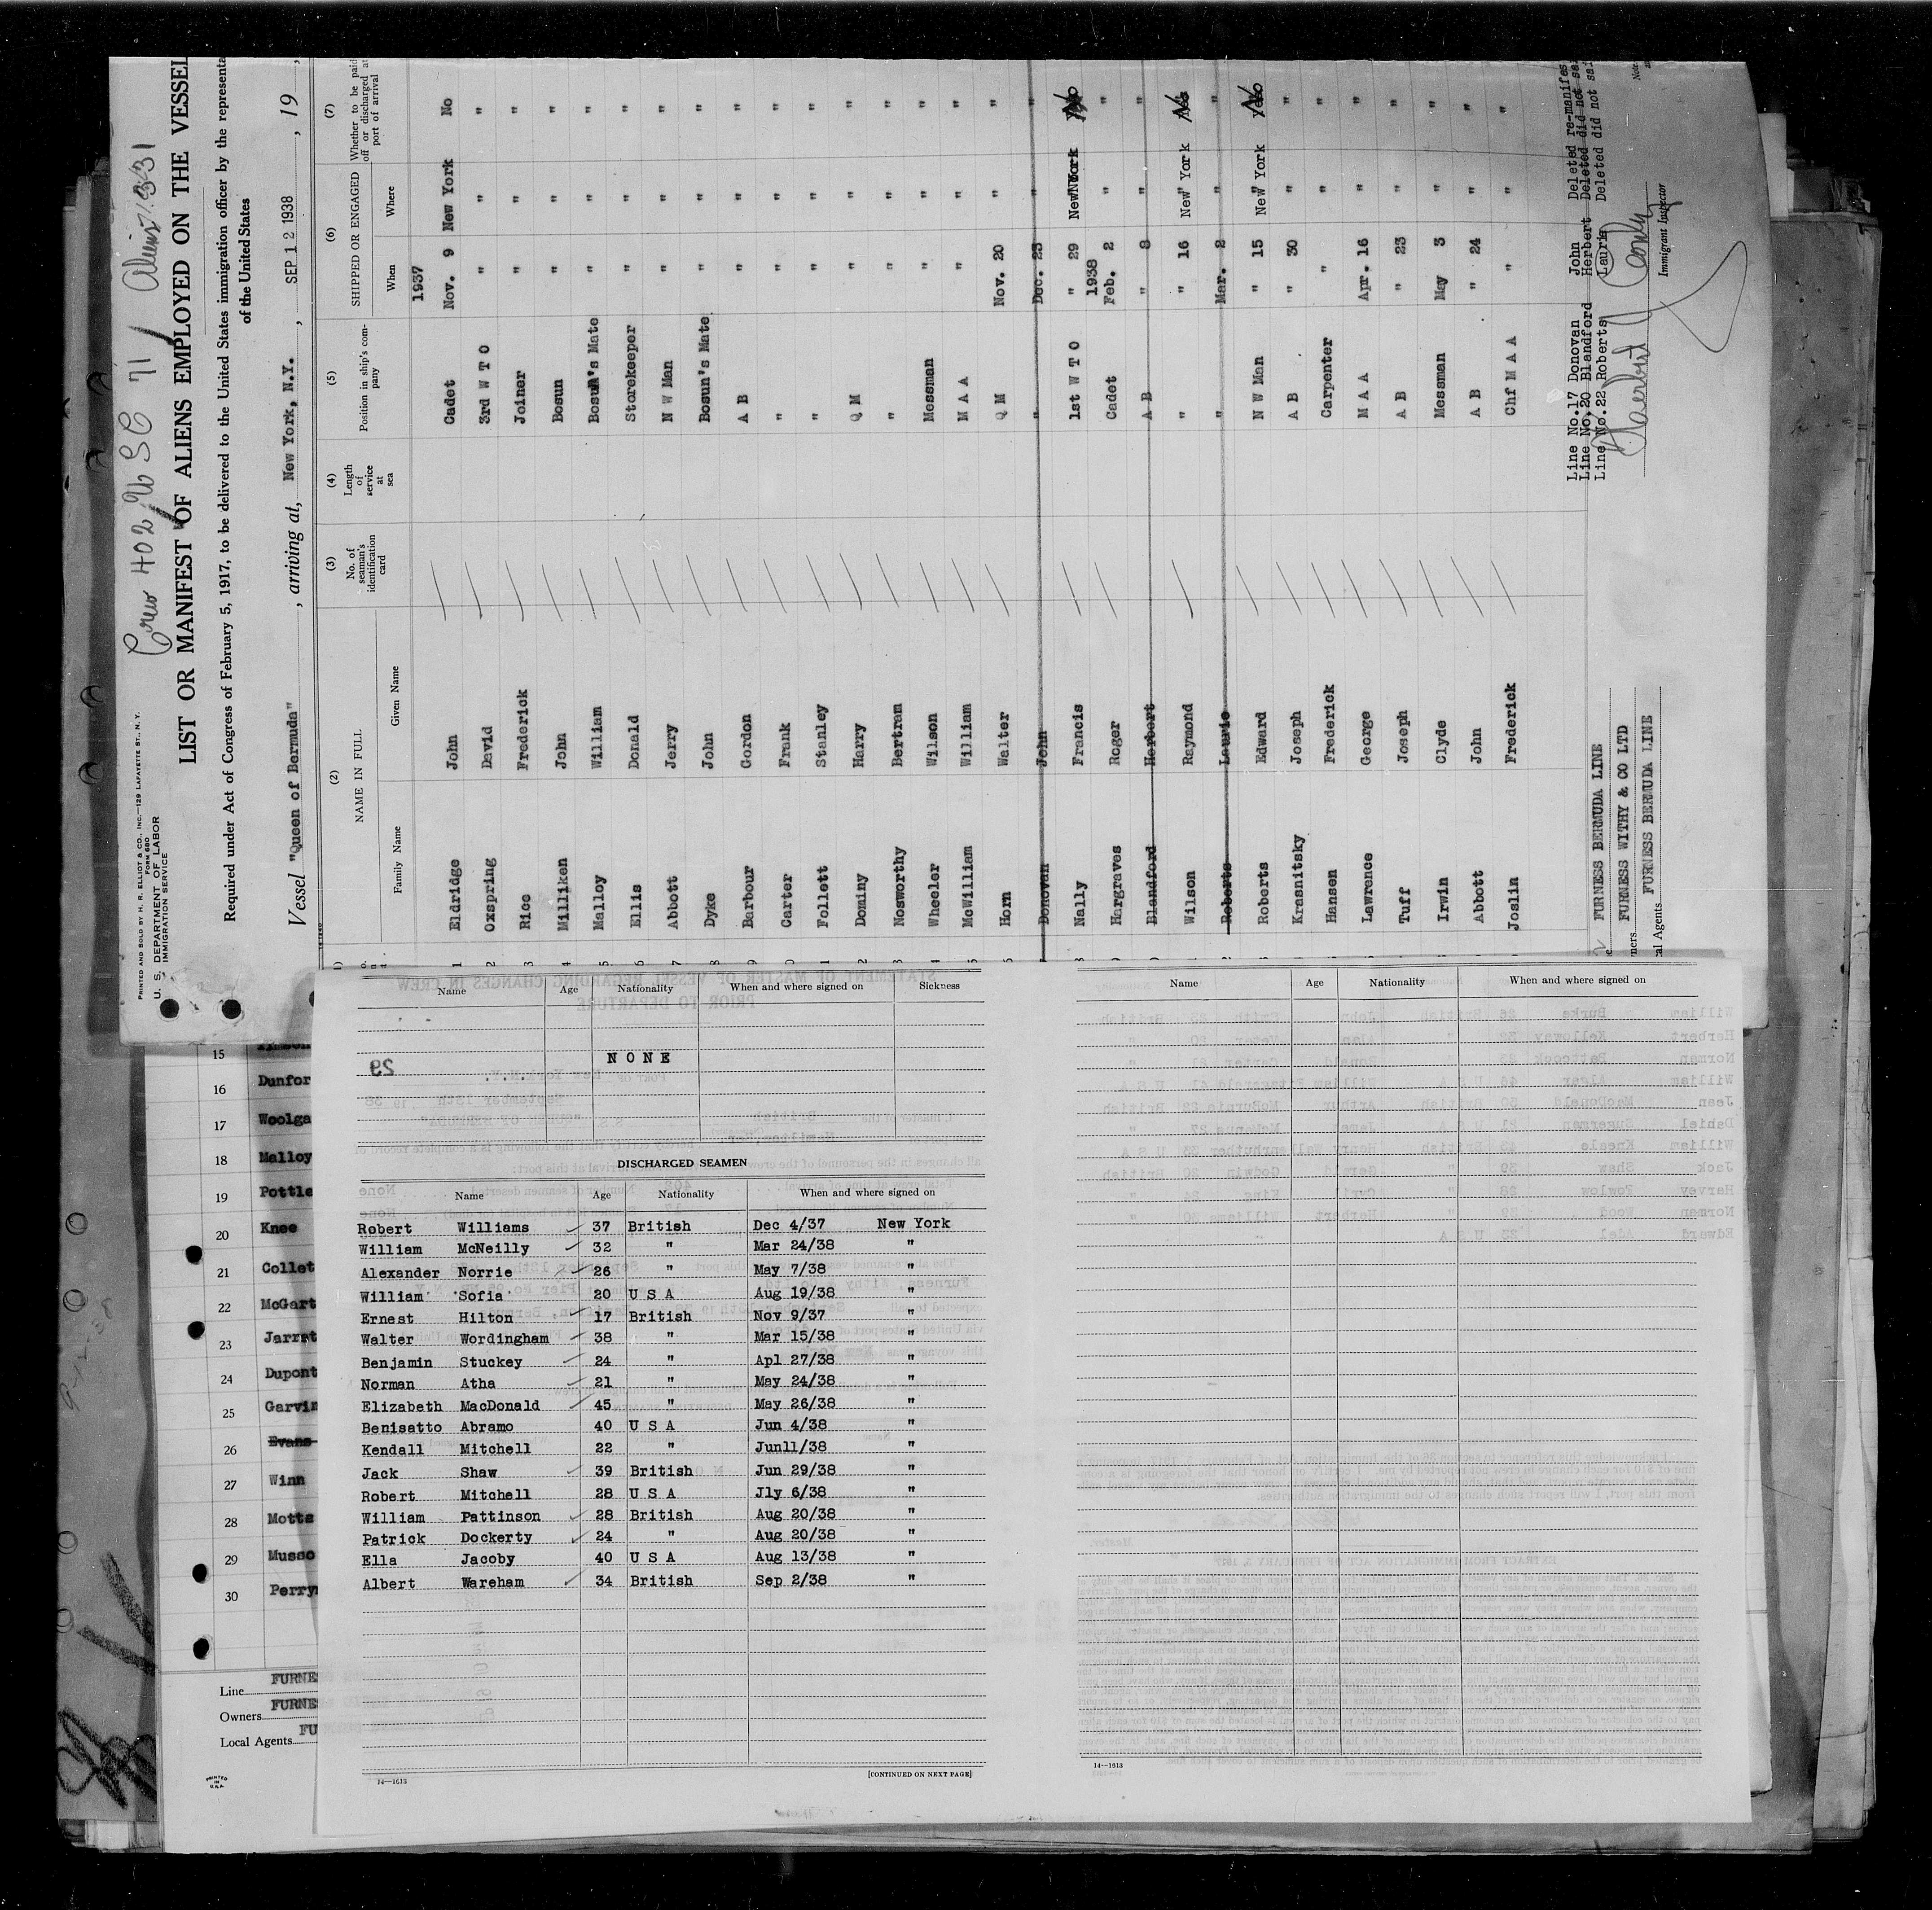 Crew 402
PRINTED AND SOLD BY H. R. ELLIOT & CO., INC.—129 LAFAYETTE ST., N. Y.
FORM 680
U. S. DEPARTMENT OF LABOR
IMMIGRATION SERVICE
LIST OR MANIFEST OF ALIENS EMPLOYED ON THE VESSEL
Required under Act of Congress of February 5, 1917, to be delivered to the United States immigration officer by the representa
of the United States
Vessel "Queen of Bermuda", arriving at, New York, N.Y., SEP 12 1938, 19
(2) (3) (4) (5) (6) (7)
NAME IN FULL No. of seaman's identification card Length of service at sea Position in ship's company SHIPPED OR ENGAGED Whether to be paid off or discharged at port of arrival
Family Name Given Name When Where
1937
1 Eldridge John Cadet Nov. 9 New York No
2 Oxspring David 3rd W T O " " "
3 Rice Frederick Joiner " " "
4 Milliken John Bosun " " "
5 Malloy William Bosun's Mate " " "
6 Ellis Donald Storekeeper " " "
7 Abbott Jerry N W Man " " "
8 Dyke John Bosun's Mate " " "
9 Barbour Gordon A B " " "
0 Carter Frank " " " "
1 Follett Stanley " " " "
2 Dominy Harry Q M " " "
3 Nosworthy Bertram " " " "
Wheeler Wilson Messman " " "
5 McWilliam William M A A " " "
Horn Walter Q M Nov. 20 " "
Donovan John " Dec. 23 " "
8 Nally Francis 1st W T O " 29 New York No
1938
Hargraves Roger Cadet Feb. 2 " "
Blandford Herbert A B " 8 " "
Wilson Raymond " " 16 New York No
Roberts Laurie " Mar. 2 " "
Roberts Edward N W Man " 15 New York No
Krasnitsky Joseph A B " 30 " "
Hansen Frederick Carpenter " " "
Lawrence George M A A Apr. 16 " "
Tuff Joseph A B " 23 " "
Irwin Clyde Messman May 3 " "
Abbott John A B " 24 " "
Joslin Frederick Chf M A A " " "
Line No.17 Donovan John Deleted re-manifes
Line No.20 Blandford Herbert Deleted did not sai
Line No.22 Roberts Laurie Deleted did not sai
FURNESS BERMUDA LINE
FURNESS WITHY & CO LTD
FURNESS BERMUDA LINE
ners
al Agents
Immigrant Inspector
Name Age Nationality When and where signed on Sickness
NONE
29
DISCHARGED SEAMEN
Name Age Nationality When and where signed on
Robert Williams 37 British Dec 4/37 New York
William McNeilly 32 " Mar 24/38 "
Alexander Norrie 26 " May 7/38 "
William Sofia 20 U S A Aug 19/38 "
Ernest Hilton 17 British Nov 9/37 "
Walter Wordingham 38 " Mar 15/38 "
Benjamin Stuckey 24 " Apl 27/38 "
Norman Atha 21 " May 24/38 "
Elizabeth MacDonald 45 " May 26/38 "
Benisatto Abramo 40 U S A Jun 4/38 "
Kendall Mitchell 22 " Jun11/38 "
Jack Shaw 39 British Jun 29/38 "
Robert Mitchell 28 U S A Jly 6/38 "
William Pattinson 28 British Aug 20/38 "
Patrick Dockerty 24 " Aug 20/38 "
Ella Jacoby 40 U S A Aug 13/38 "
Albert Wareham 34 British Sep 2/38 "
14—1613
[CONTINUED ON NEXT PAGE]
Name Age Nationality When and where signed on
14—1613
15
16 Dunfor
17 Woolga
18 Malloy
19 Pottle
20 Knee
21 Collet
22 McGart
23 Jarrrt
24 Dupont
25 Garvin
26 Evans
27 Winn
28 Motts
29 Musso
30 Perry
Line FURNE
Owners FURNE
Local Agents FU
PRINTED IN U.S.A.